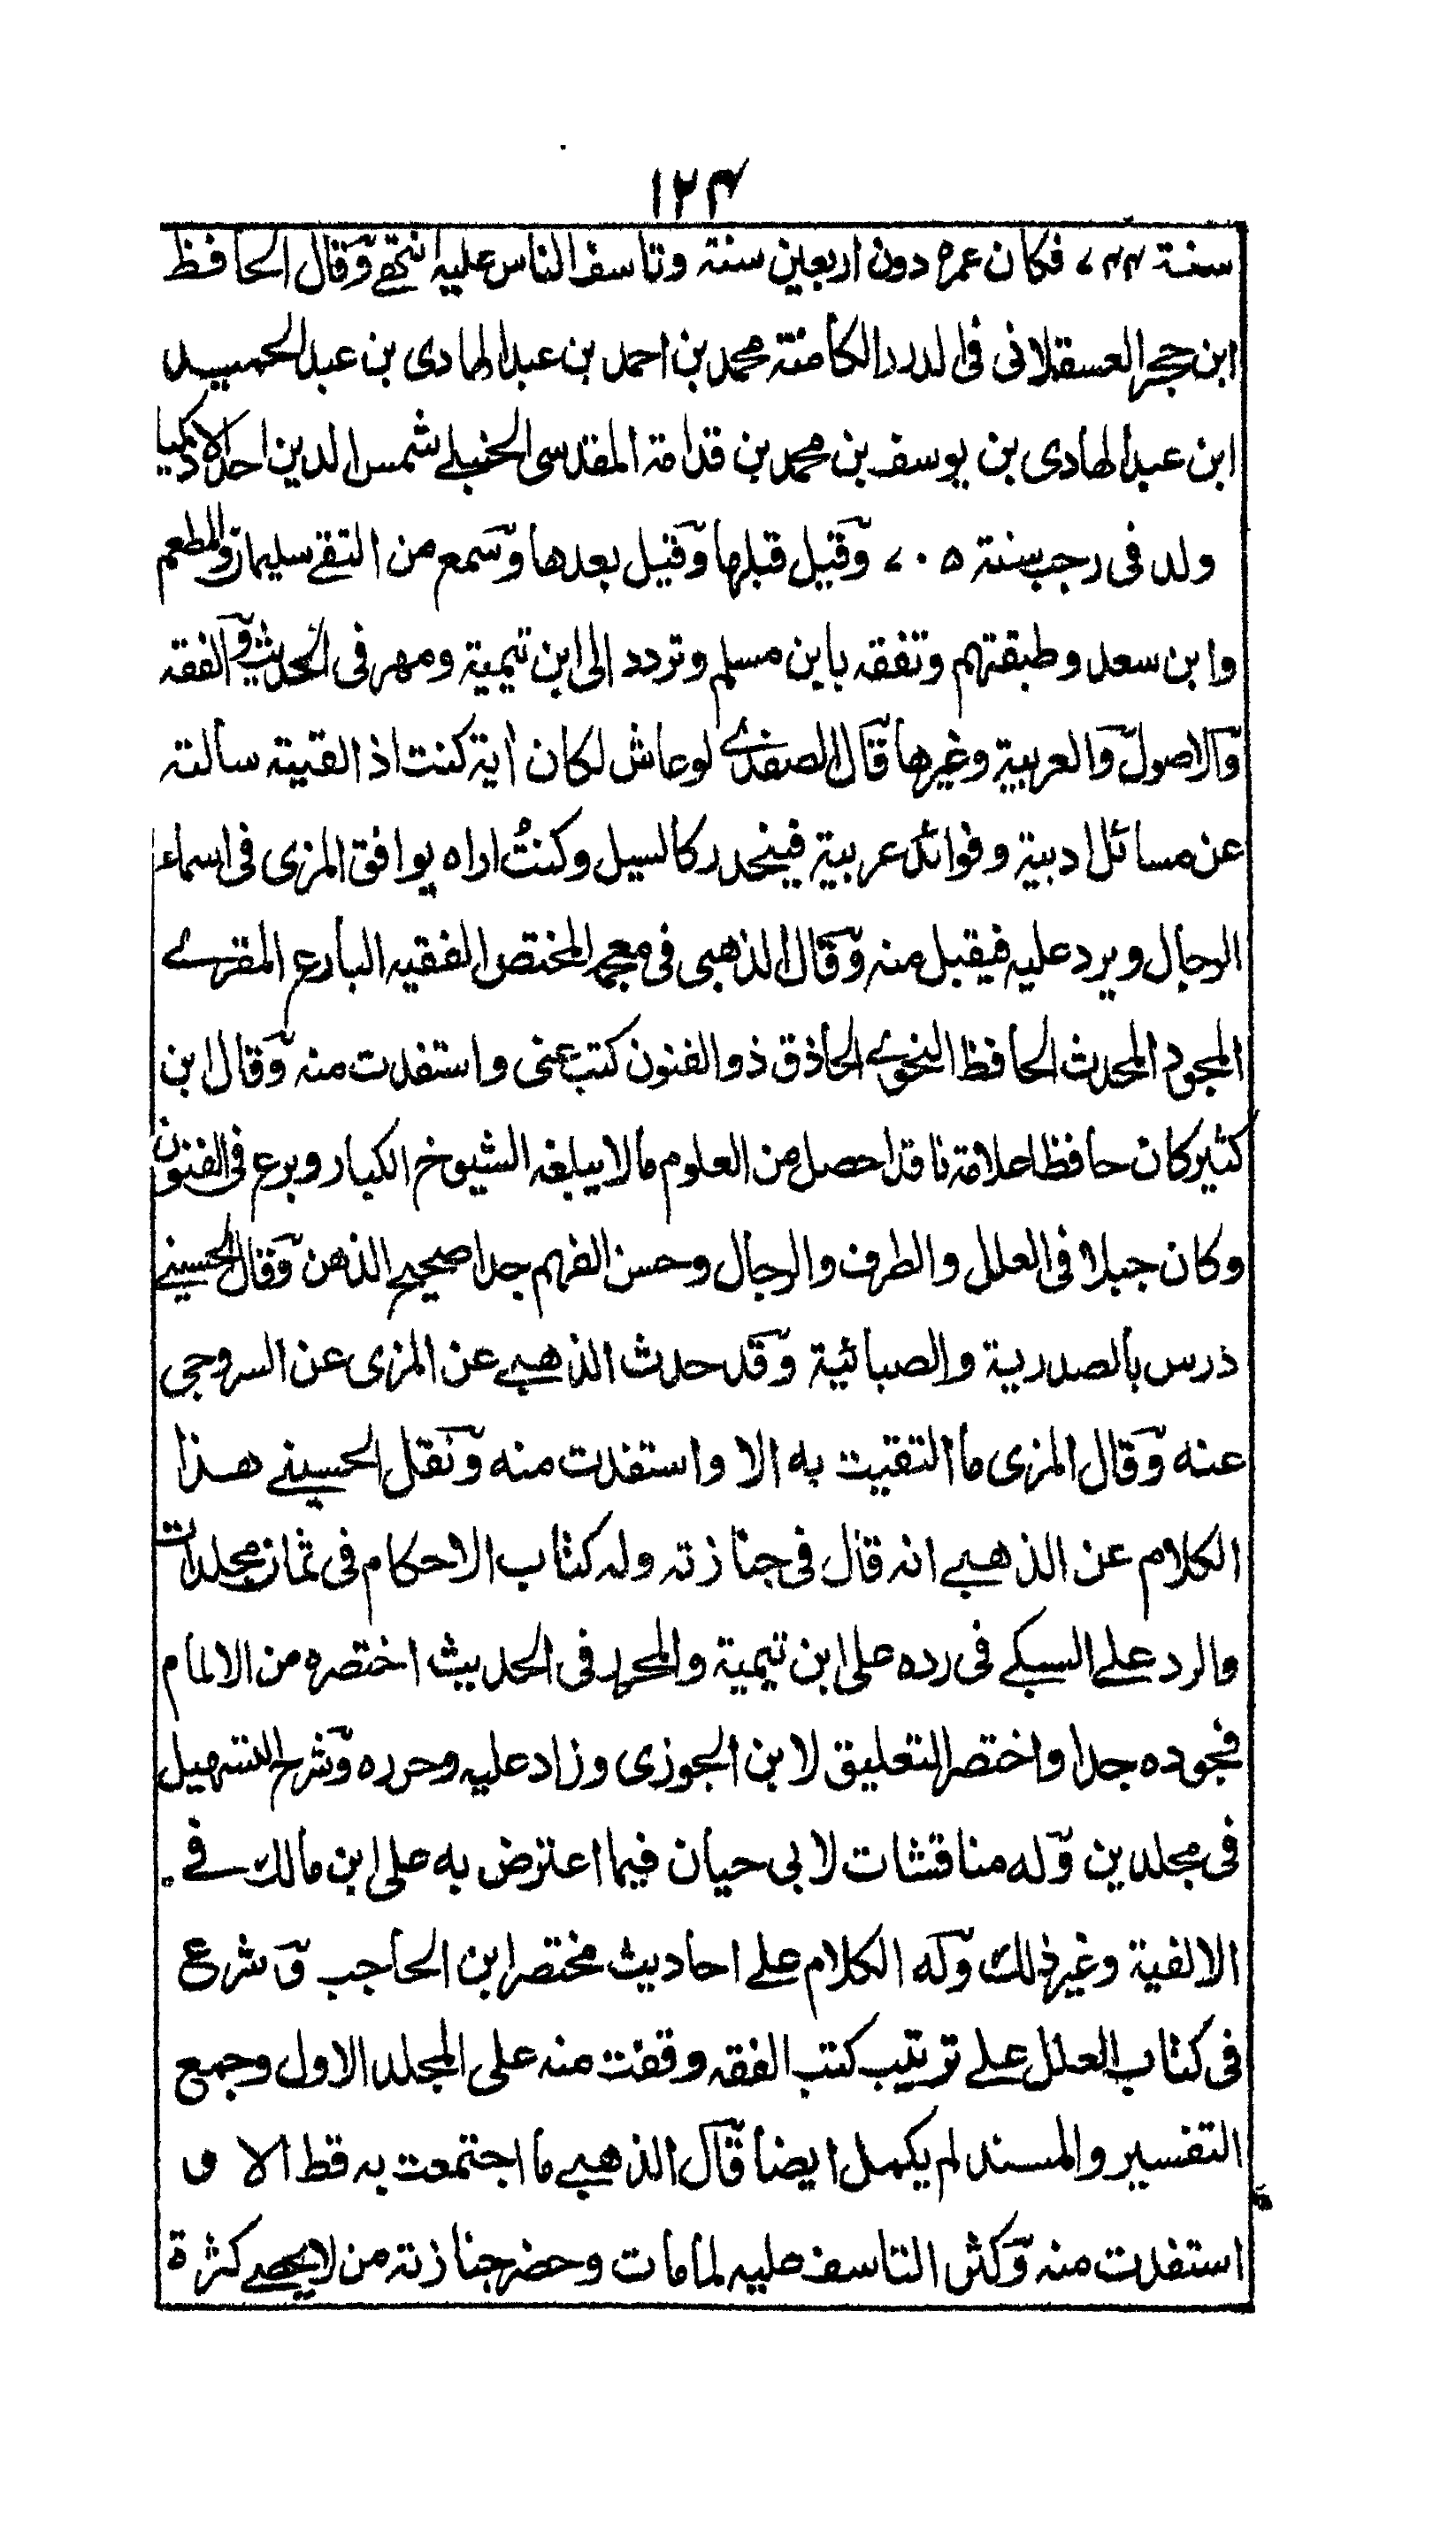 ١٢٤
سنة ٧٤٤ فكان عمره دون اربعين سنة وتاسف الناس عليه انتهى وقال الحافظ
ابن حجر العسقلانى فى الدرر الكامنة محمد بن احمد بن عبد الهادى بن عبد الحميد
ابن عبد الهادى بن يوسف بن محمد بن قدامة المقدسى الحنبلى شمس الدين احد الاذكيا
ولد فى رجب سنة ٧٠٥ وقيل قبلها وقيل بعدها وسمع من التقى سليمان والمطعم
وابن سعد وطبقتهم وتفقه بابن مسلم وتردد الى ابن تيمية ومهر فى الحديث والفقه
والاصول والعربية وغيرها قال الصفدى لو عاش لكان أية كنت اذا لقيته سألته
عن مسائل ادبية وفوائد عربية فينحدر كالسيل وكنتُ اراه يوافق المزى فى اسماء
الرجال ويرد عليه فيقبل منه وقال الذهبى فى معجمه المختص الفقيه البارع المقرى
المجود المحدث الحافظ النحوى الحاذق ذو الفنون كتب عنى واستفدت منه وقال ابن
كثير كان حافظا علامة ناقدا حصل من العلوم مالا يبلغه الشيوخ الكبار وبرع فى الفنون
وكان جبلا فى العلل والطرف والرجال وحسن الفهم جدا صحيح الذهن وقال الحسينى
درس بالصدرية والصبائية وقد حدث الذهبى عن المزى عن السروجى
عنه وقال المزى ما التقيت به الا واستفدت منه ونقل الحسينى هذا
الكلام عن الذهبى انه قال فى جنازته وله كتاب الاحكام فى ثمان مجلدات
والرد على السبكى فى رده على ابن تيمية والمحرر فى الحديث اختصره من الالمام
فجوده جدا واختصر التعليق لابن الجوزى وزاد عليه وحرره وشرح التسهيل
فى مجلدين وله مناقشات لابى حيان فيما اعترض به على ابن مالك فى
الالفية وغير ذلك وله الكلام على احاديث مختصر ابن الحاجب وشرع
فى كتاب العلل على ترتيب كتب الفقه وقفت منه على المجلد الاول وجمع
التفسير والمسند لم يكمل ايضا قال الذهبى ما اجتمعت به قط الا و
استفدت منه وكثر التاسف عليه لما مات وحضر جنازته من لا يحصى كثرة